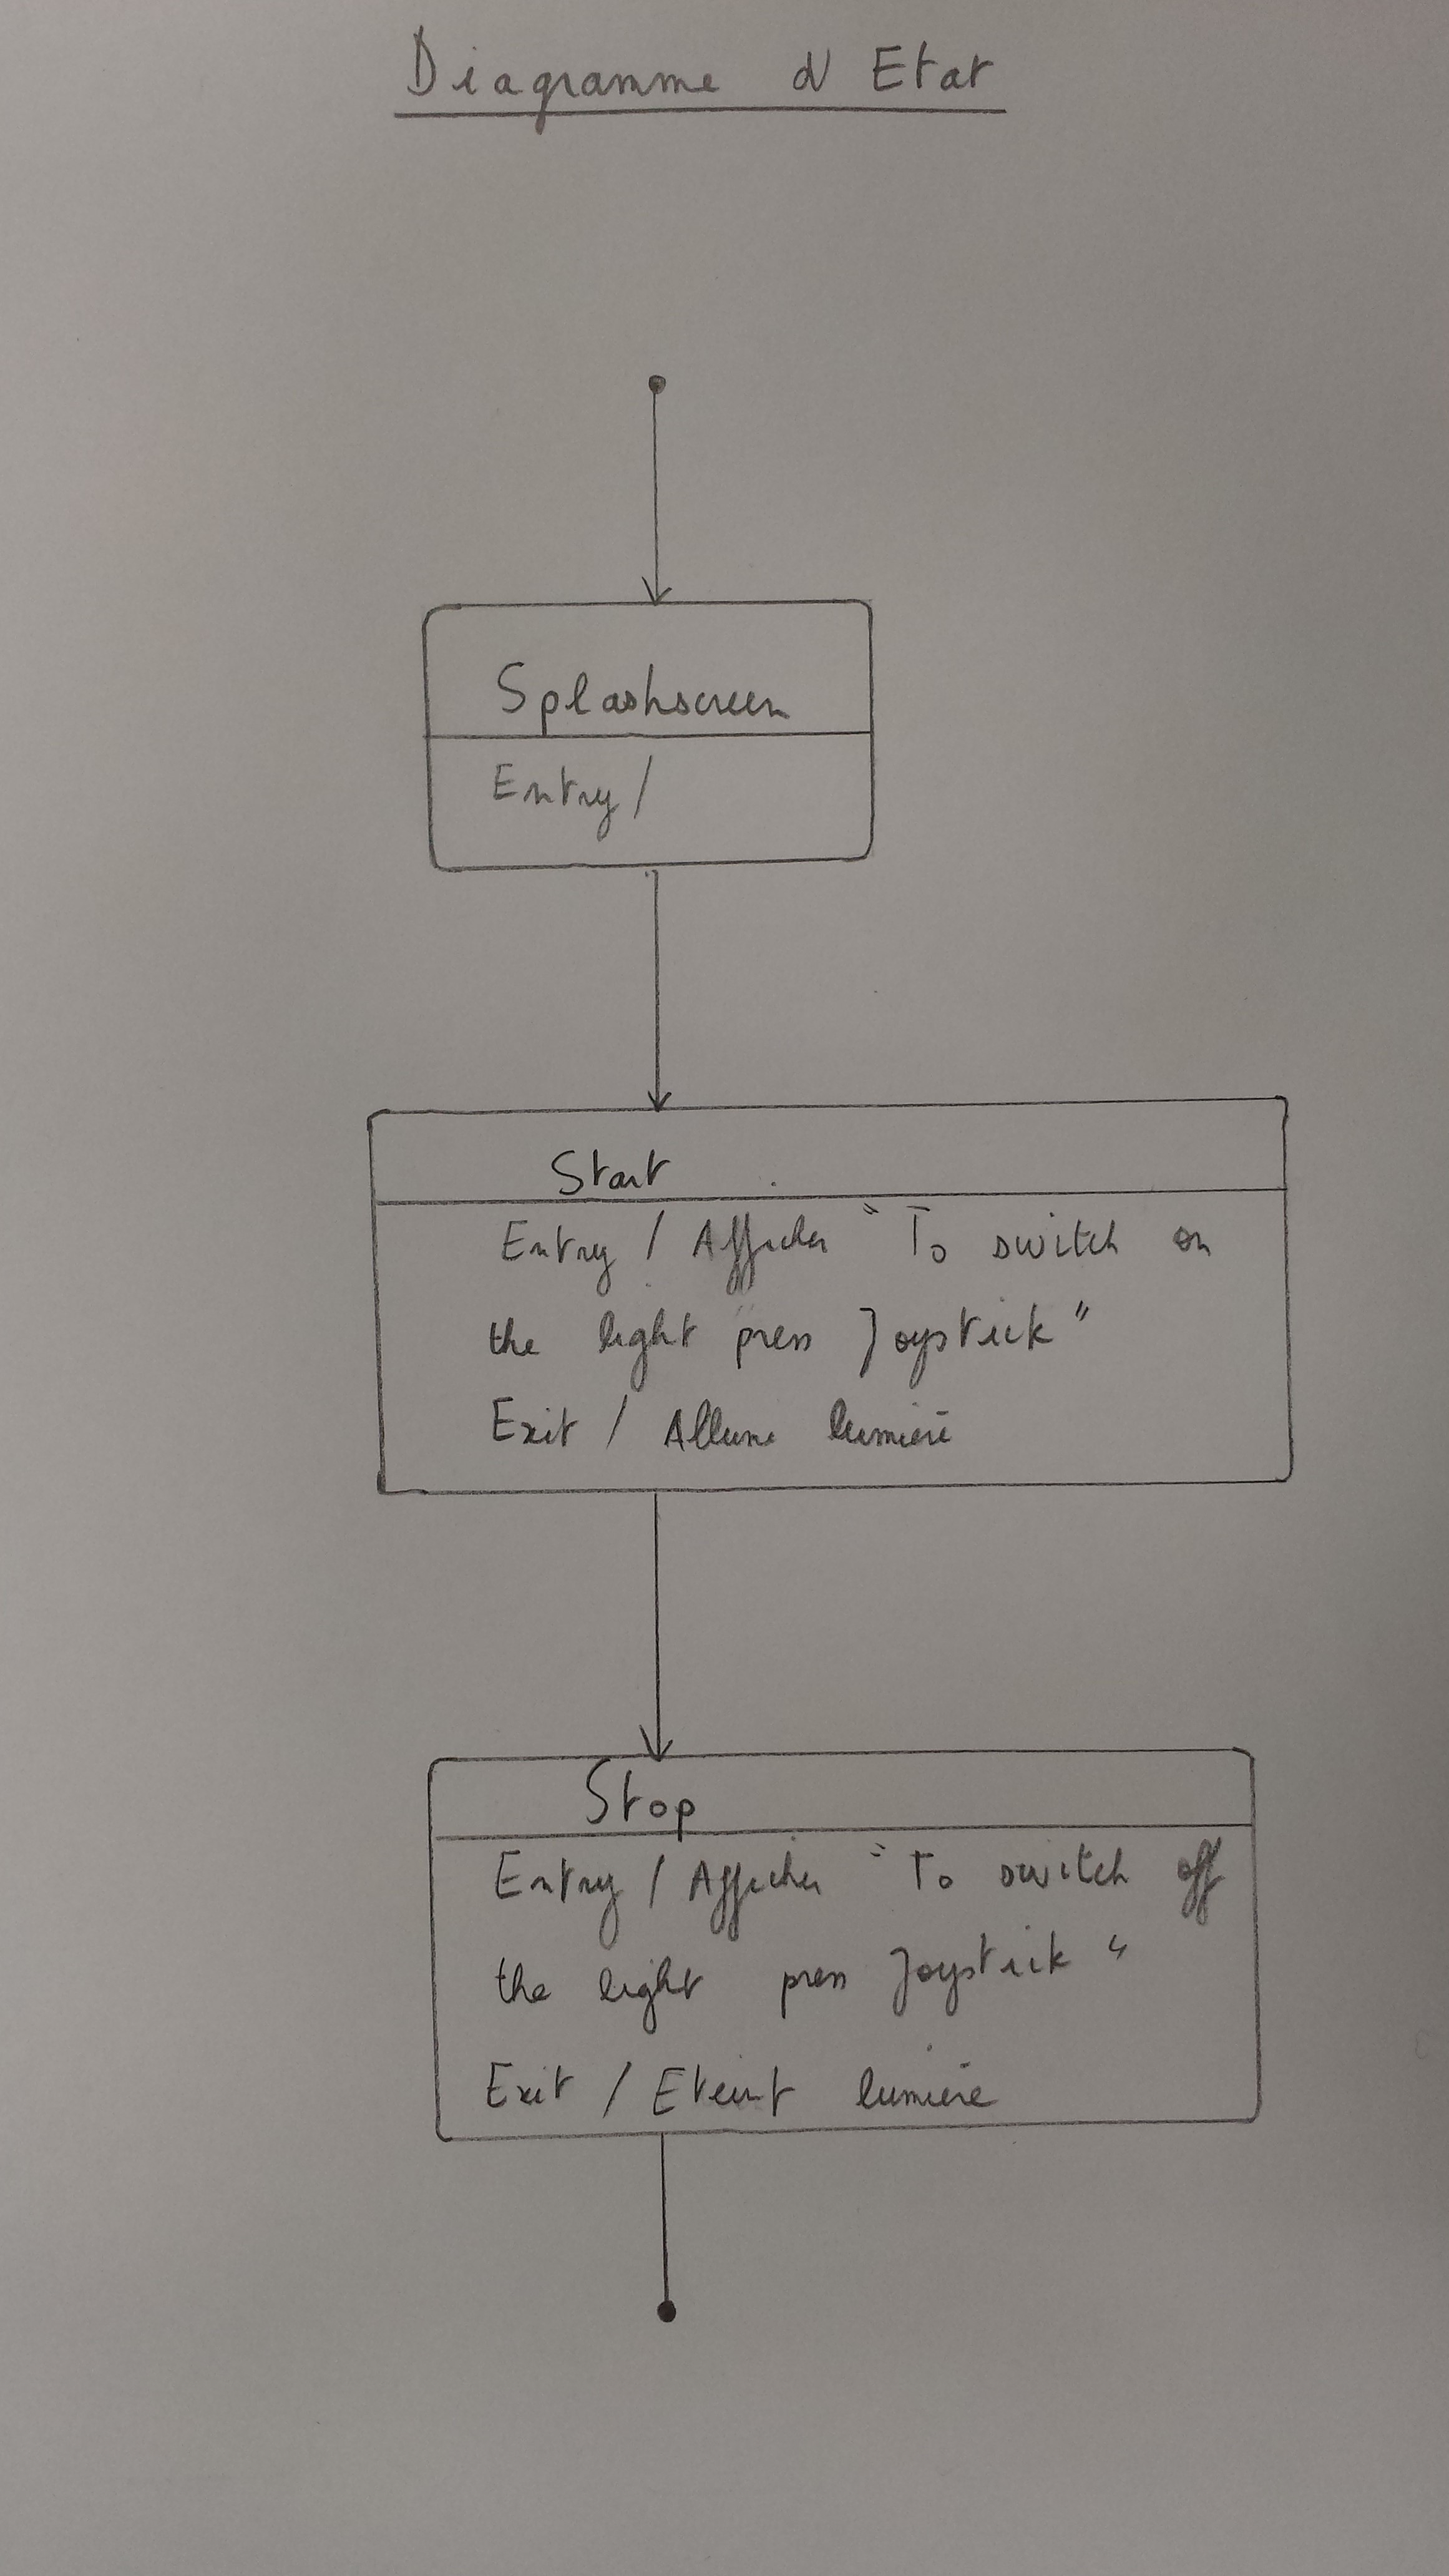 Diagramme d'Etat
Splashscreen
Entry /
Start
Entry / Afficher "To switch on
the light press Joystick"
Exit / Allume lumière
Stop
Entry / Afficher "To switch off
the light press Joystick"
Exit / Eteint lumière